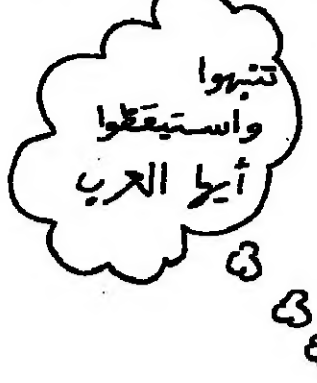 تنبهوا
واستيقظوا
أيها العرب